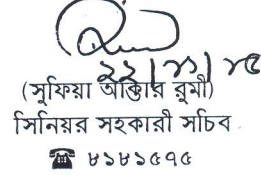 ২২/১/২৫
(সুফিয়া আক্তার রুমী)
সিনিয়র সহকারী সচিব
☎ ৮১৮১৫৭৫